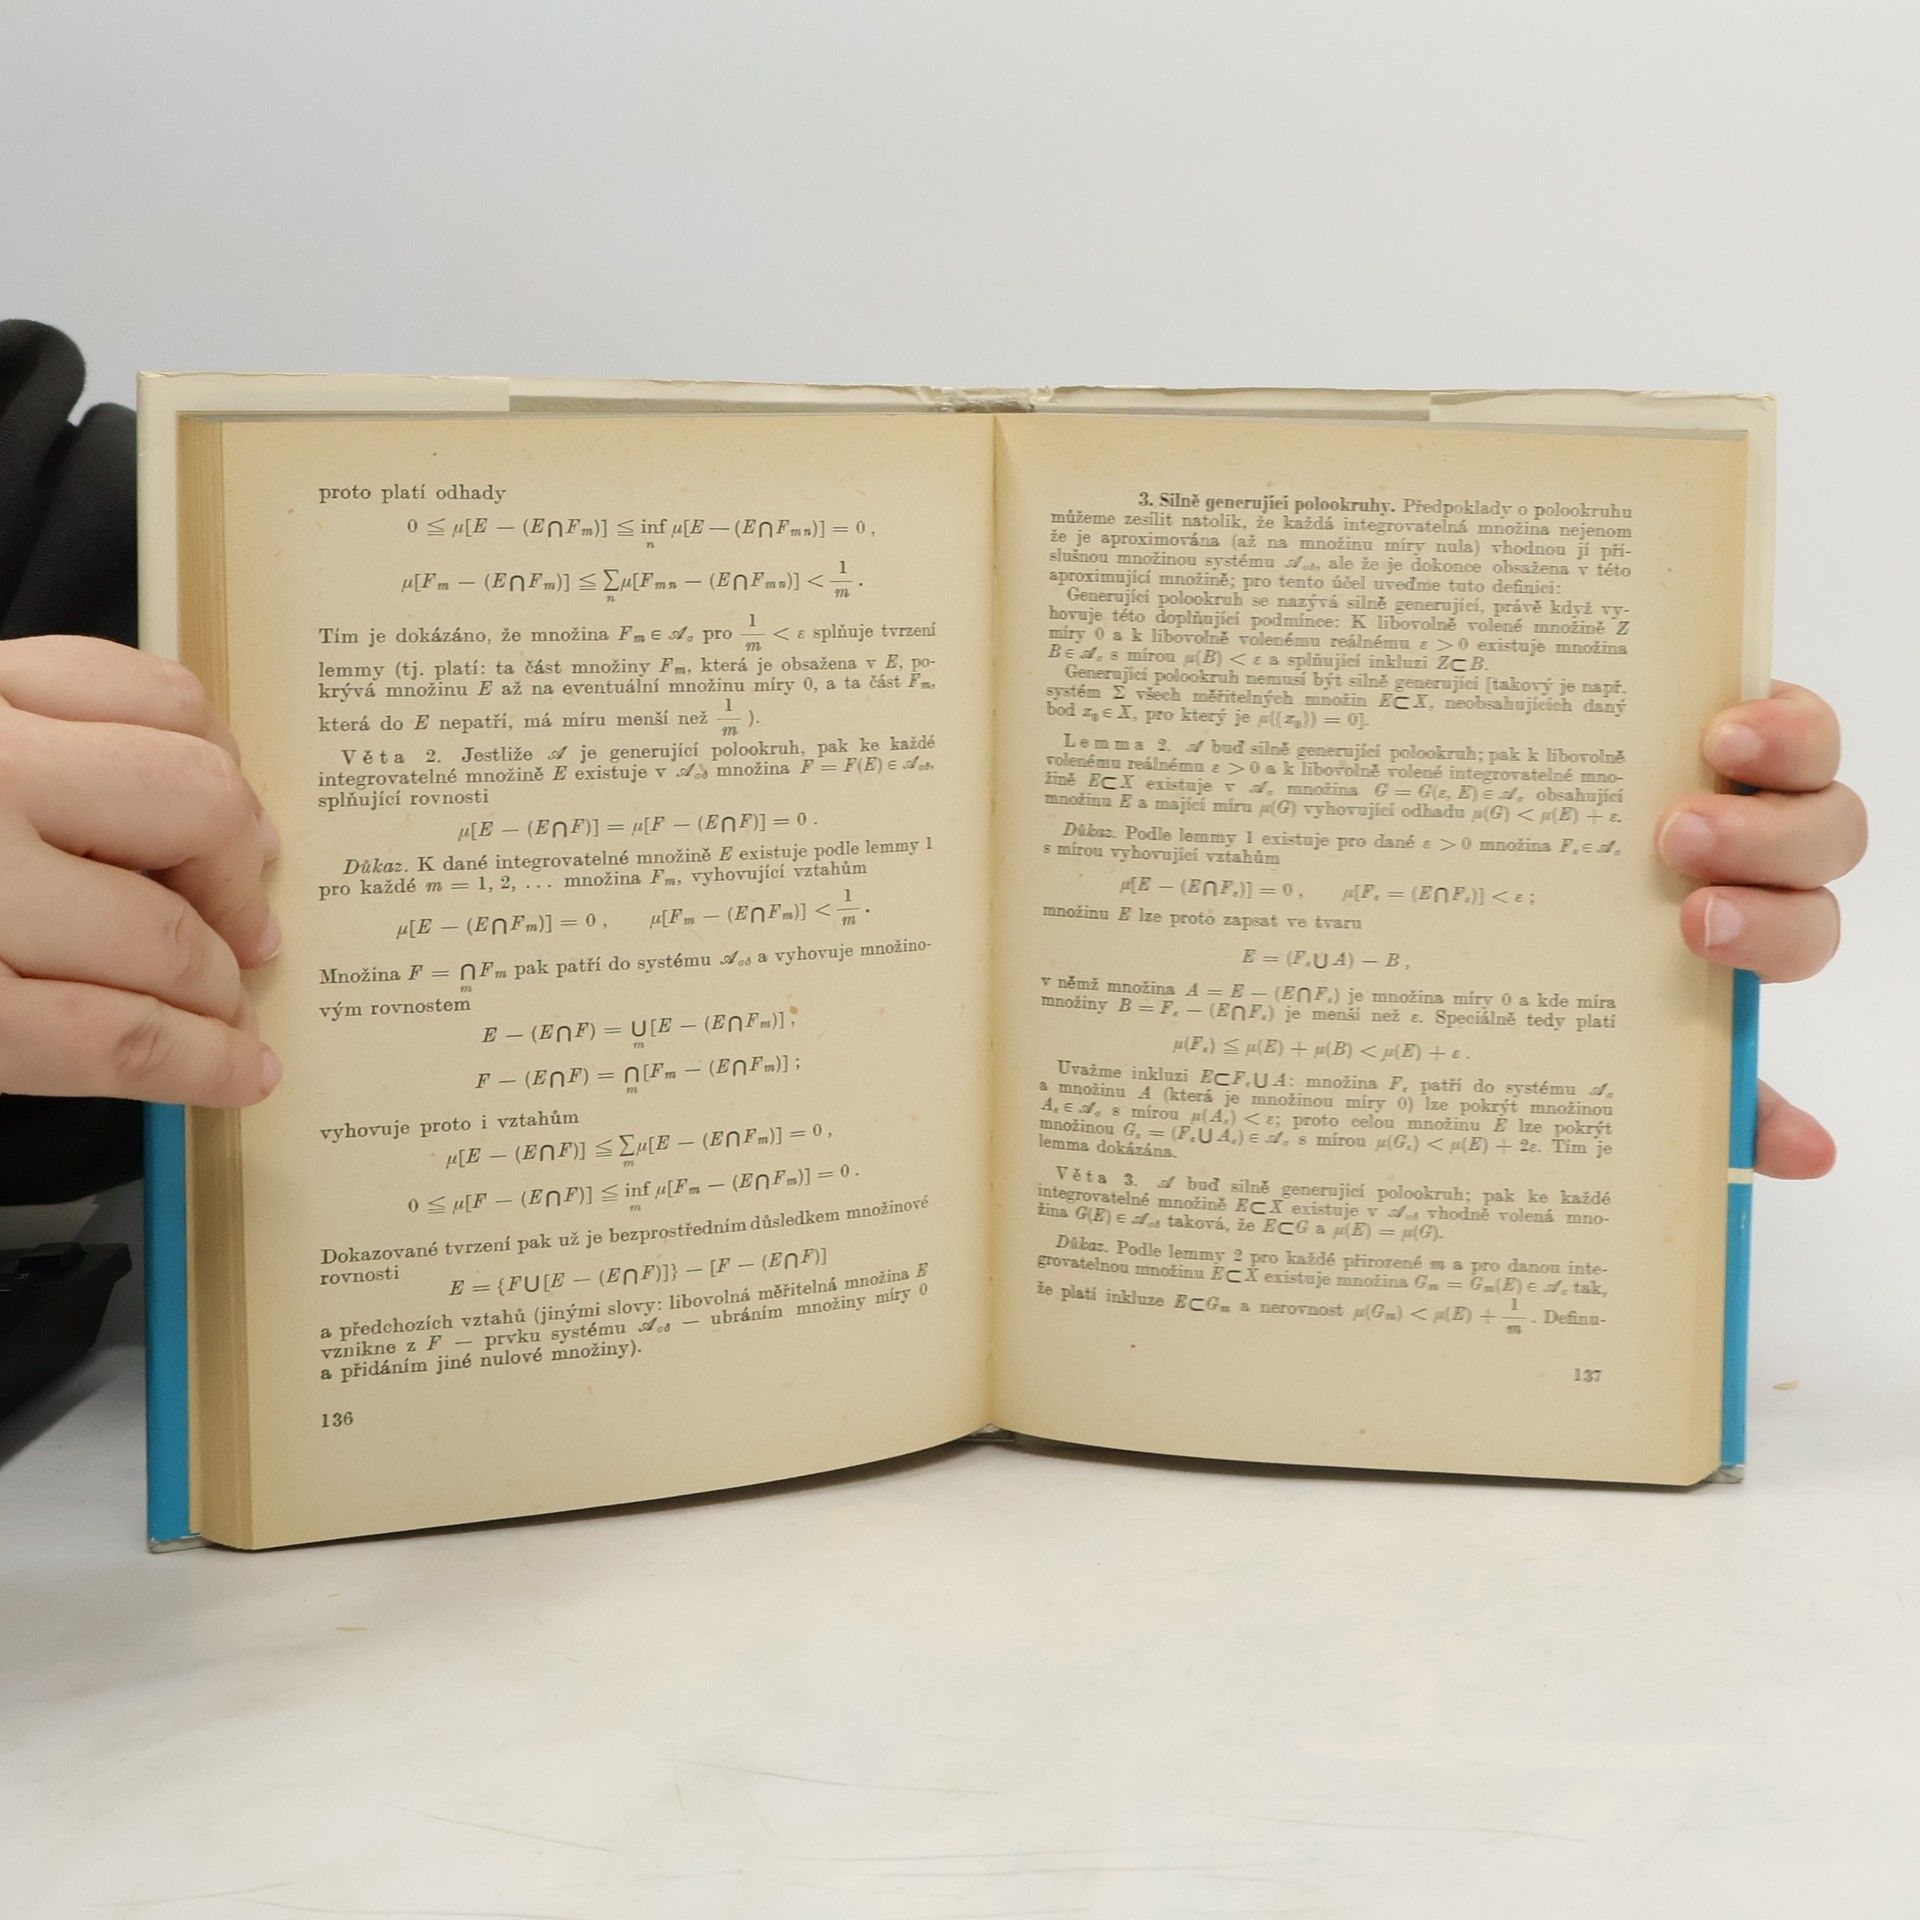 proto platí odhady
0 ≦ μ[E − (E⋂Fₘ)] ≦ inf μ[E — (E⋂Fₘₙ)] = 0 ,
n
μ[Fₘ − (E⋂Fₘ)] ≦ ∑ μ[Fₘₙ − (E⋂Fₘₙ)] < 1/m .
n
Tím je dokázáno, že množina Fₘ ∈ 𝒜_σ pro 1/m < ε splňuje tvrzení
lemmy (tj. platí: ta část množiny Fₘ, která je obsažena v E, po-
krývá množinu E až na eventuální množinu míry 0, a ta část Fₘ,
která do E nepatří, má míru menší než 1/m ).
Věta 2. Jestliže 𝒜 je generující polookruh, pak ke každé
integrovatelné množině E existuje v 𝒜_σδ množina F = F(E) ∈ 𝒜_σδ,
splňující rovnosti
μ[E − (E⋂F)] = μ[F − (E⋂F)] = 0 .
Důkaz. K dané integrovatelné množině E existuje podle lemmy 1
pro každé m = 1, 2, ... množina Fₘ, vyhovující vztahům
μ[E − (E⋂Fₘ)] = 0 , μ[Fₘ − (E⋂Fₘ)] < 1/m .
Množina F = ⋂Fₘ pak patří do systému 𝒜_σδ a vyhovuje množino-
m
vým rovnostem
E − (E⋂F) = ⋃[E − (E⋂Fₘ)] ,
m
F − (E⋂F) = ⋂[Fₘ − (E⋂Fₘ)] ;
m
vyhovuje proto i vztahům
μ[E − (E⋂F)] ≦ ∑μ[E − (E⋂Fₘ)] = 0 ,
m
0 ≦ μ[F − (E⋂F)] ≦ inf μ[Fₘ − (E⋂Fₘ)] = 0 .
m
Dokazované tvrzení pak už je bezprostředním důsledkem množinové
rovnosti
E = {F⋃[E − (E⋂F)]} − [F − (E⋂F)]
a předchozích vztahů (jinými slovy: libovolná měřitelná množina E
vznikne z F — prvku systému 𝒜_σδ — ubráním množiny míry 0
a přidáním jiné nulové množiny).
136
3. Silně generující polookruhy. Předpoklady o polookruhu
můžeme zesílit natolik, že každá integrovatelná množina nejenom
že je aproximována (až na množinu míry nula) vhodnou jí pří-
slušnou množinou systému 𝒜_σδ, ale že je dokonce obsažena v této
aproximující množině; pro tento účel uveďme tuto definici:
Generující polookruh se nazývá silně generující, právě když vy-
hovuje této doplňující podmínce: K libovolně volené množině Z
míry 0 a k libovolně volenému reálnému ε > 0 existuje množina
B ∈ 𝒜_σ s mírou μ(B) < ε a splňující inkluzi Z⊂B.
Generující polookruh nemusí být silně generující [takový je např.
systém Σ všech měřitelných množin E⊂X, neobsahujících daný
bod x₀ ∈ X, pro který je μ({x₀}) = 0].
Lemma 2. 𝒜 buď silně generující polookruh; pak k libovolně
volenému reálnému ε > 0 a k libovolně volené integrovatelné mno-
žině E⊂X existuje v 𝒜_σ množina G = G(ε, E) ∈ 𝒜_σ obsahující
množinu E a mající míru μ(G) vyhovující odhadu μ(G) < μ(E) + ε.
Důkaz. Podle lemmy 1 existuje pro dané ε > 0 množina F_ε ∈ 𝒜_σ
s mírou vyhovující vztahům
μ[E − (E⋂F_ε)] = 0 , μ[F_ε = (E⋂F_ε)] < ε ;
množinu E lze proto zapsat ve tvaru
E = (F_ε⋃A) − B ,
v němž množina A = E − (E⋂F_ε) je množina míry 0 a kde míra
množiny B = F_ε − (E⋂F_ε) je menší než ε. Speciálně tedy platí
μ(F_ε) ≦ μ(E) + μ(B) < μ(E) + ε .
Uvažme inkluzi E⊂F_ε⋃A: množina F_ε patří do systému 𝒜_σ
a množinu A (která je množinou míry 0) lze pokrýt množinou
A_ε ∈ 𝒜_σ s mírou μ(A_ε) < ε; proto celou množinu E lze pokrýt
množinou G_ε = (F_ε⋃A_ε) ∈ 𝒜_σ s mírou μ(G_ε) < μ(E) + 2ε. Tím je
lemma dokázána.
Věta 3. 𝒜 buď silně generující polookruh; pak ke každé
integrovatelné množině E⊂X existuje v 𝒜_σδ vhodně volená mno-
žina G(E) ∈ 𝒜_σδ taková, že E⊂G a μ(E) = μ(G).
Důkaz. Podle lemmy 2 pro každé přirozené m a pro danou inte-
grovatelnou množinu E⊂X existuje množina Gₘ = Gₘ(E) ∈ 𝒜_σ tak,
že platí inkluze E⊂Gₘ a nerovnost μ(Gₘ) < μ(E) + 1/m . Definu-
137